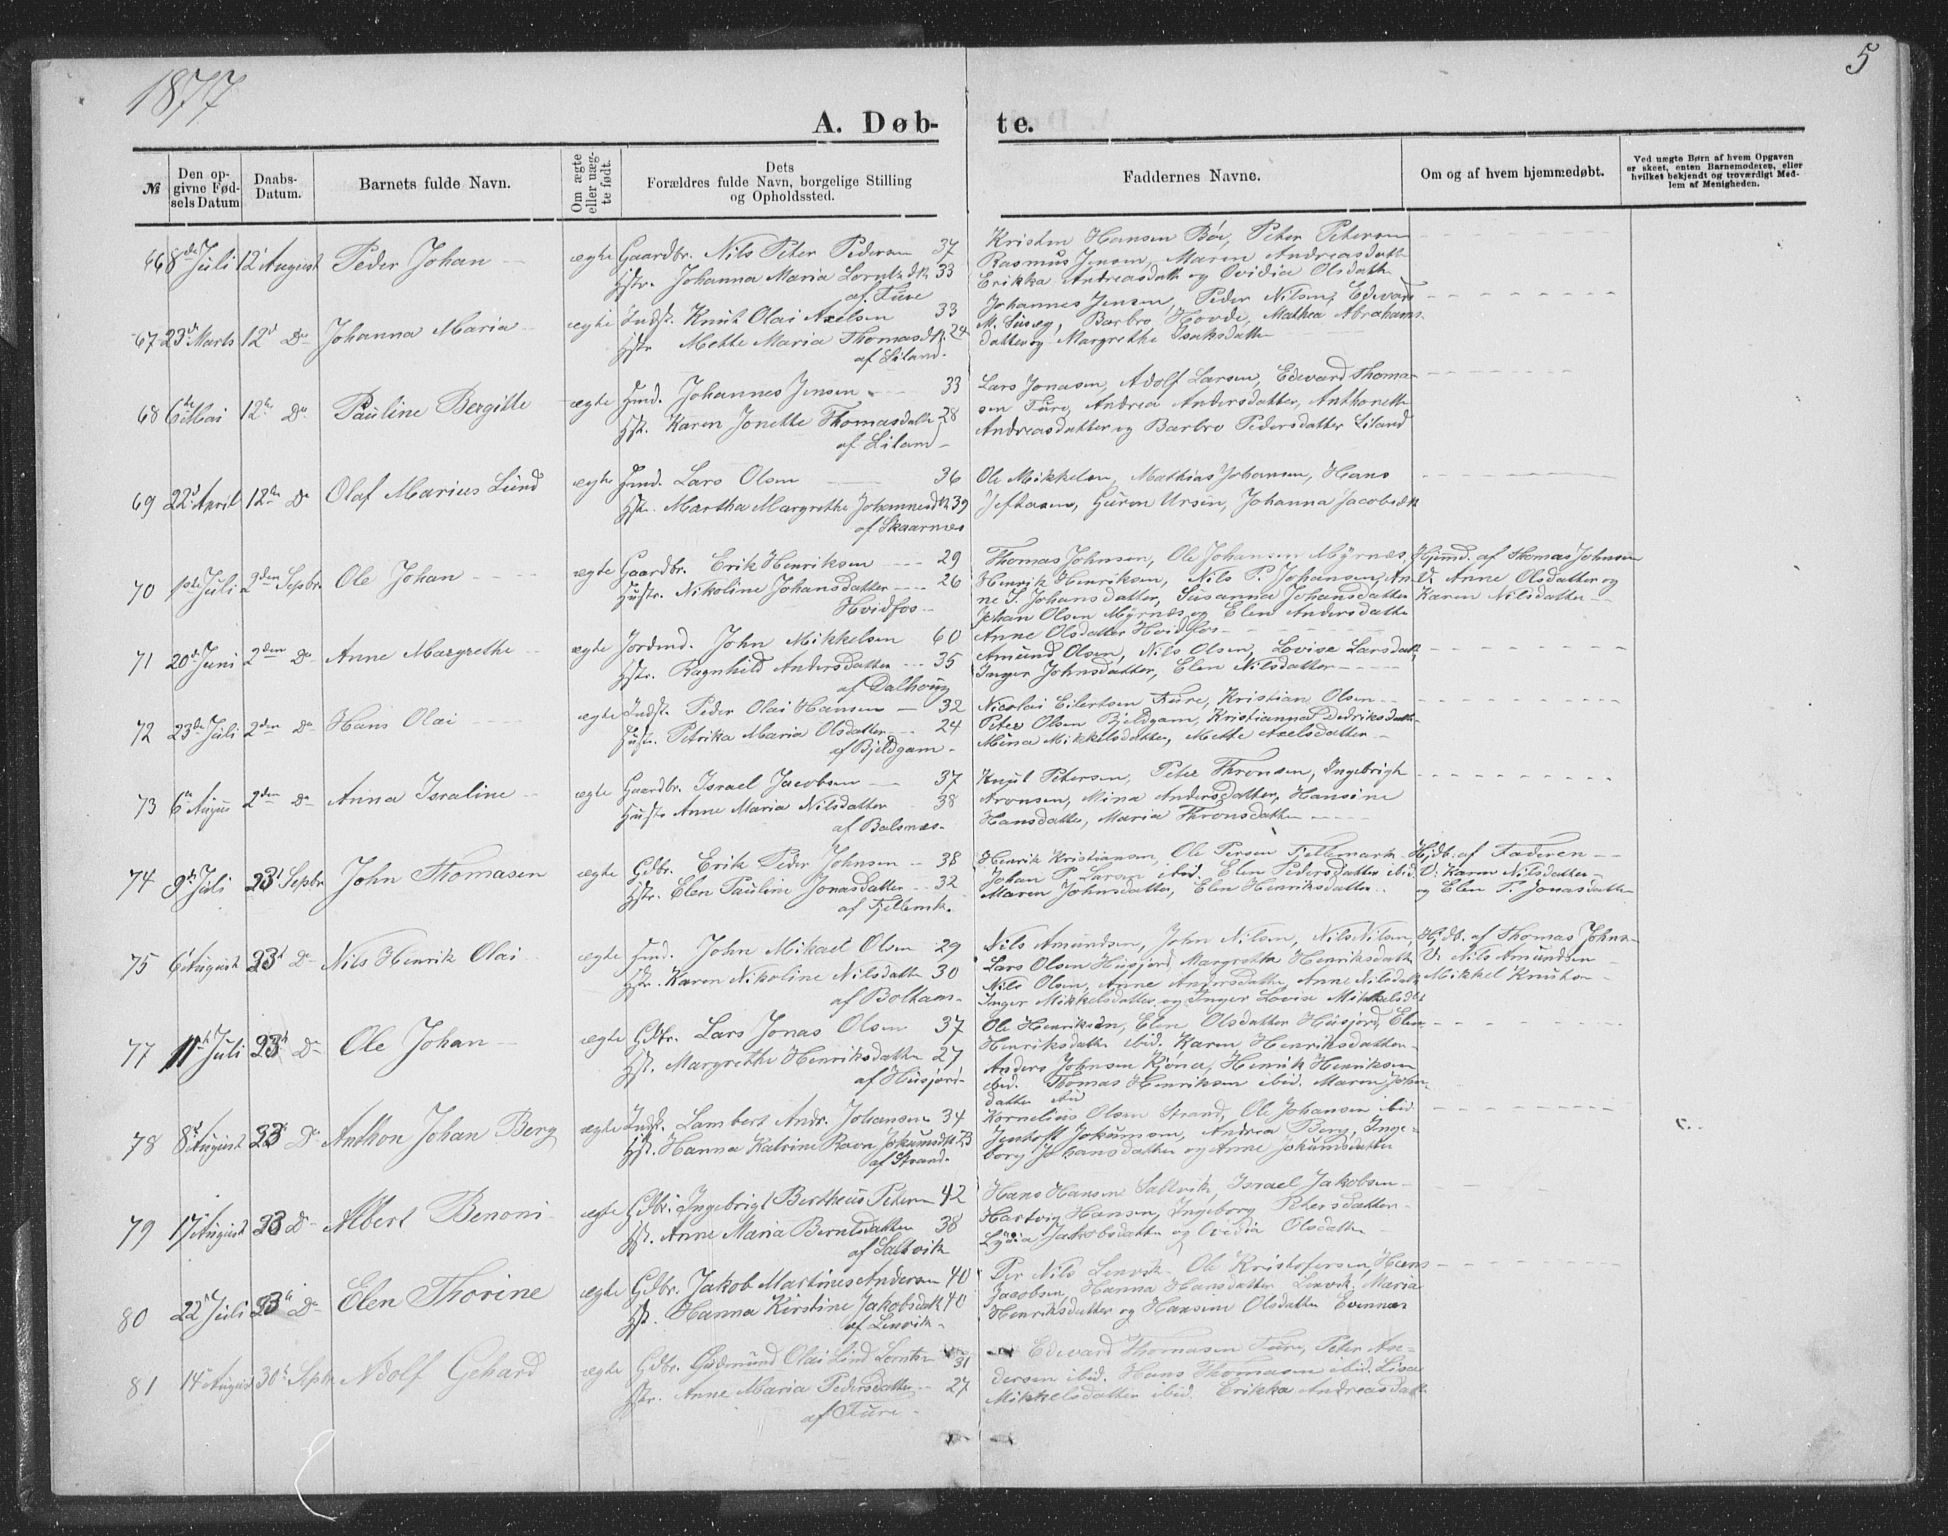 1877
5
A. Døb-
te.
№
Den op-
givne Fød-
sels Datum
Daabs-
Datum.
Barnets fulde Navn.
Om ægte
eller uæg-
te født.
Dets
Forældres fulde Navn, borgelige Stilling
og Opholdssted.
Faddernes Navne.
Om og af hvem hjemmedøbt.
Ved uægte Børn af hvem Opgaven
er skeet, enten Barnemoderen, eller
hvilket bekjendt og troværdigt Med-
lem af Menigheden.
66 8de Juli 12 August Peder Johan ægte Gaardbr. Nils Peter Pedersen 37
Hstr. Johanna Maria Lorntzdtr 33
af Fure
Kristen Hansen Bøe, Peter Petersen
Rasmus Jensen, Maren Andreasdatter
Erikka Andreasdatter og Ovidia Olsdatter
67 23d Marts 12d Do Johanna Maria ægte Indst. Knut Olai Axelsen 33
Hstr Mette Maria Thomasdtr. 24
af Liland.
Johannes Jensen, Peder Nilsen, Edevart
M. , Barbro Hovde, Mathea Abrahams-
datter og Margrethe Isaksdatter
68 6te Mai 12te Do Pauline Bergitte ægte Innd. Johannes Jensen 33
Hst. Karen Jonette Thomasdatter 28
af Liland
Lars Jonasen, Adolf Larsen, Edevard Thoma-
sen Fure, Andrea Andersdatter, Anthonette
Andreasdatter og Barbro Pedersdatter Liland
69 22d April 12te Do Olaf Marius Lund ægte Innd. Lars Olsen 36
Hstr. Martha Margrethe Johannesdtr 39
af Skaarnes
Ole Mikkelsen, Mathias Johansen, Hans
Jeftasen, Guren Ursin, Johanna Jacobsdtr
70 1ste Juli 2den Septbr Ole Johan ægte Gaardbr. Erik Henriksen 29
Hustr. Nikoline Johansdatter 26
Hvidfos
Thomas Johnsen, Ole Johansen Myrnes,
Henrik Henriksen, Nils P. Johansen, An-
ne S. Johansdatter, Susanna Johansdatter
Johan Olsen Myrnes og Elen Andersdatter
Hjemd. af Thomas Johnsen
V. Anne Olsdatter og
Karen Nilsdatter
71 20de Juni 2den Do Anne Margrethe ægte Jordmd. John Mikkelsen 60
Hstr. Ragnhild Andersdatter 35
af Dalhoug
Anne Olsdatter Hvidfos
Amund Olsen, Nils Olsen, Lovise Larsdatter
Inger Johnsdatter, Elen Nilsdatter
72 23de Juli 2den Do Hans Olai ægte Indst. Peder Olai Hansen 32
Hust. Petrika Maria Olsdatter 24
af Bjeldgam
Nicolai Eilertsen Fure, Kristian Olsen
Peter Olsen Bjeldgam, Kristianna Dedriksdatter
Mina Mikkelsdatter, Mette Axelsdatter
73 6te August 2den Do Anna Israline ægte Gaardbr. Israel Jacobsen 37
Hustr Anne Maria Nilsdatter 38
af Balsnes
Knut Petersen, Peter Thronsen, Ingebrigt
Aronsen, Mina Andersdatter, Hansine
Hansdatter, Maria Thronsdatter
74 9de Juli 23d Septbr John Thomasen ægte Gdbr. Erik Peder Johnsen 38
Hstr. Elen Pauline Jonasdatter 32
af Fjellemk.
Henrik Kristiansen, Ole Persen Fjellemark
Johan P. Larsen ibid. Elen Pedersdatter ibid
Maren Johnsdatter, Elen Henriksdatter
Hjdb. af Faderen
V. Karen Nilsdatter
og Elen P. Jonasdatter
75 6t August 23d Do Nils Henrik Olai ægte Innd. John Mikael Olsen 29
Hstr. Karen Nikoline Nilsdatter 30
af Boltaas.
Nils Amundsen, John Nilsen, Nils Nilsen,
Lars Olsen Husjord, Margrethe Henriksdatter
Nils Olsen, Anne Andersdatter, Anne Nilsdatter
Inger Mikkelsdatter og Inger Lovise Mikkelsdtr
Hjdb. af Thomas Johns-
V. Nils Amundsen
Mikkel Knutsen
77 11te Juli 23d Do Ole Johan ægte Gdbr. Lars Jonas Olsen 37
Hst. Margrethe Henriksdatter 27
af Husjord
Ole Henriksen, Elen Olsdatter Husjord, Elen
Henriksdatter ibid. Karen Henriksdatter
Anders Johnsen Kjønna, Henrik Henriksen
ibid. Thomas Henriksen ibid. Maren John-
datter ibid
78 8t August 23d Do Anthon Johan Berg ægte Indst. Lambert Andr. Johansen 34
Hst. Hanna Katrine Ravn Jokumsdtr 23
af Strand.
Kornelius Olsen Strand, Ole Johansen ibid
Jentoft Jokumsen, Andrea Berg, Inge-
borg Johansdatter og Anne Jokumsdatter
79 17t August 23d Do Albert Benoni ægte Gdbr. Ingebrigt Bertheus Petersen 42
Hst. Anne Maria Berntsdatter 38
af Saltvik
Hans Hansen Saltvik, Israel Jakobsen
Hartvig Hansen, Ingeborg Petersdatter
Lydia Jakobsdatter og Ovidia Olsdatter
80 22d Juli 23d Do Elen Thorine ægte Gdbr. Jakob Martines Andersen 40
Hst. Hanna Kirstine Jakobsdatter 40
af Lenvik
Per Nils Lenvik Ole Kristofersen, Hans
Jacobsen, Hanna Hansdatter Lenvik, Maria
Henriksdatter og Hansine Olsdatter Evennes
81 14t August 30te Septbr Adolf Gehard ægte Gdbr. Gudmund Olai Lind Lorntsen 31
Hstr. Anne Maria Pedersdatter 27
af Fure
Edevard Thomasen Fure, Peter An-
dersen ibid. Hans Thomasen ibid. Lisa
Mikkelsdatter ibid. Erikka Andreasdatter